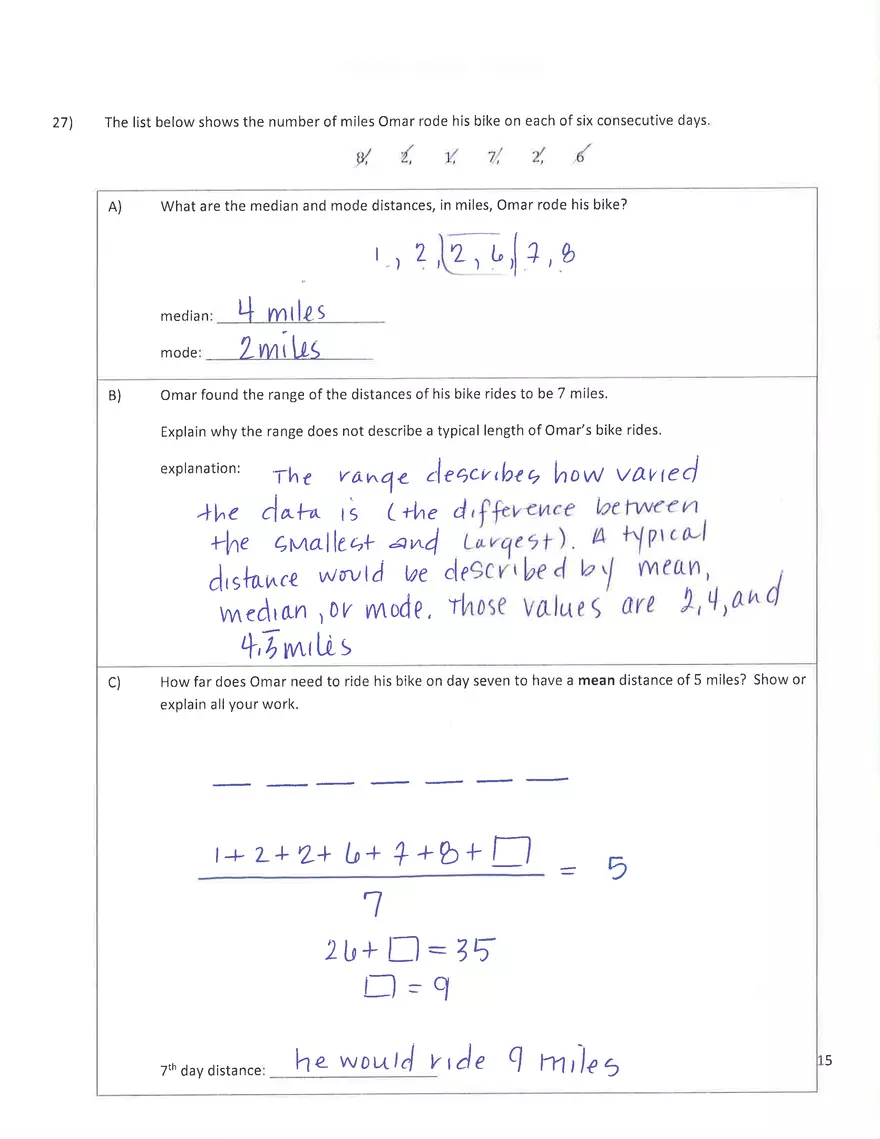 27) The list below shows the number of miles Omar rode his bike on each of six consecutive days.
8, 2, 1, 7, 2, 6
A) What are the median and mode distances, in miles, Omar rode his bike?
1, 2, 2, 6, 7, 8
median: 4 miles
mode: 2 miles
B) Omar found the range of the distances of his bike rides to be 7 miles.
Explain why the range does not describe a typical length of Omar's bike rides.
explanation: The range describes how varied
the data is (the difference between
the smallest and largest). A typical
distance would be described by mean,
median, or mode. Those values are 2, 4, and
4.3̅ miles
C) How far does Omar need to ride his bike on day seven to have a mean distance of 5 miles? Show or
explain all your work.
1 + 2 + 2 + 6 + 7 + 8 + □ = 5
7
26 + □ = 35
□ = 9
7th day distance: he would ride 9 miles
15